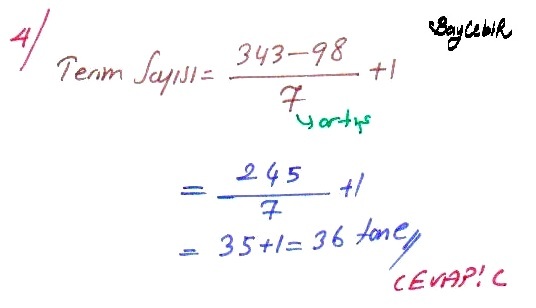 BAYCEBİR
4/
Terim Sayısı = 343-98 / 7 +1
→ artış
= 245 / 7 +1
= 35+1 = 36 tane //
CEVAP: C